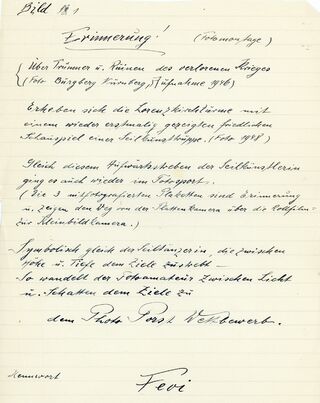 Bild № 1
Erinnerung! (Fotomontage)
Über Trümmer u. Ruinen des verlorenen Krieges
(Foto Burgberg Nürnberg, Aufnahme 1946)
Erheben sich die Lorenzkirchtürme mit
einem wieder erstmalig gezeigten friedlichen
Schauspiel einer Seilkünstlergruppe. (Foto 1948)
Gleich diesem Aufwärtsstreben der Seilkünstlerin
ging es auch wieder im Fotosport.
(Die 3 mitfotografierten Plaketten sind Erinnerung
u. zeigen den Weg von der Plattenkamera über die Rollfilm-
zur Kleinbildkamera.)
Symbolisch gleich der Seiltänzerin die zwischen
Höhe u. Tiefe dem Ziele zustrebt –
So wandelt der Fotoamateur zwischen Licht
u. Schatten dem Ziele zu
dem Photo Porst Wettbewerb.
Kennwort
Fevi